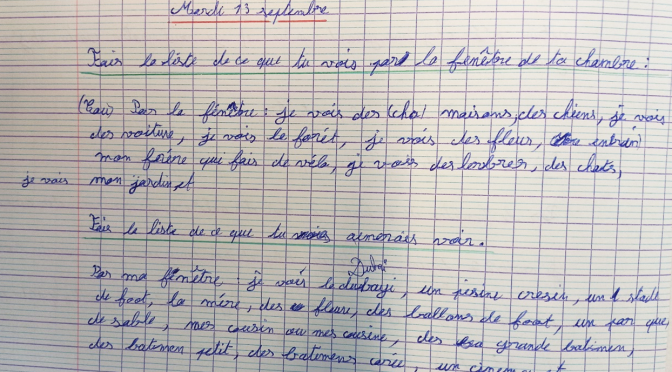 Mardi 13 septembre
Fais la liste de ce que tu vois par la fenêtre de ta chambre :
Par la fenêtre : je vois des maisons, des chiens, je vois
des voiture, je vois le forêt, je vois des fleur,
mon que fais de vélo, je vois des, des chats,
je vois mon jardin, et
Fais la liste de ce que tu aimerais voir.
Par ma fenêtre : je vois le Dubaï, un
un stade
de foot, la mère, des fleure, des ballons de foot, un par que
de sable, mes cousin ou mes cousine, des grande batimen,
des batimen petit, des batimens, un cinema et